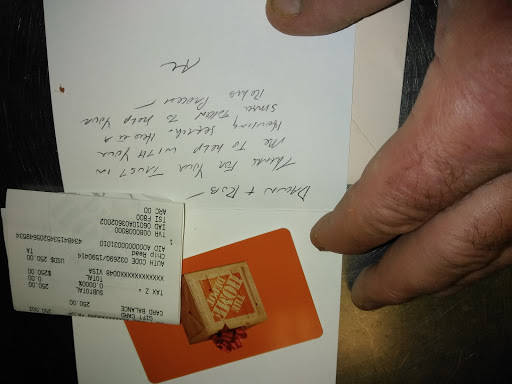 Dawn + Rob —
Thanks For Your Trust in
Me To help with Your
Housing search. Here is a
small Token To help Your
Rehab Process —
GIFT CARD 250.00
CARD BALANCE
SUBTOTAL 250.00
TAX Z + 0.0000% 0.00
TOTAL $250.00
VISA
US$ 250.00
AUTH CODE 03269G/1590414
Chip Read
AID A0000000031010
TVR 0080008000
IAD 06010A03602002
TSI F800
ARC 00
THE
HOME
DEPOT